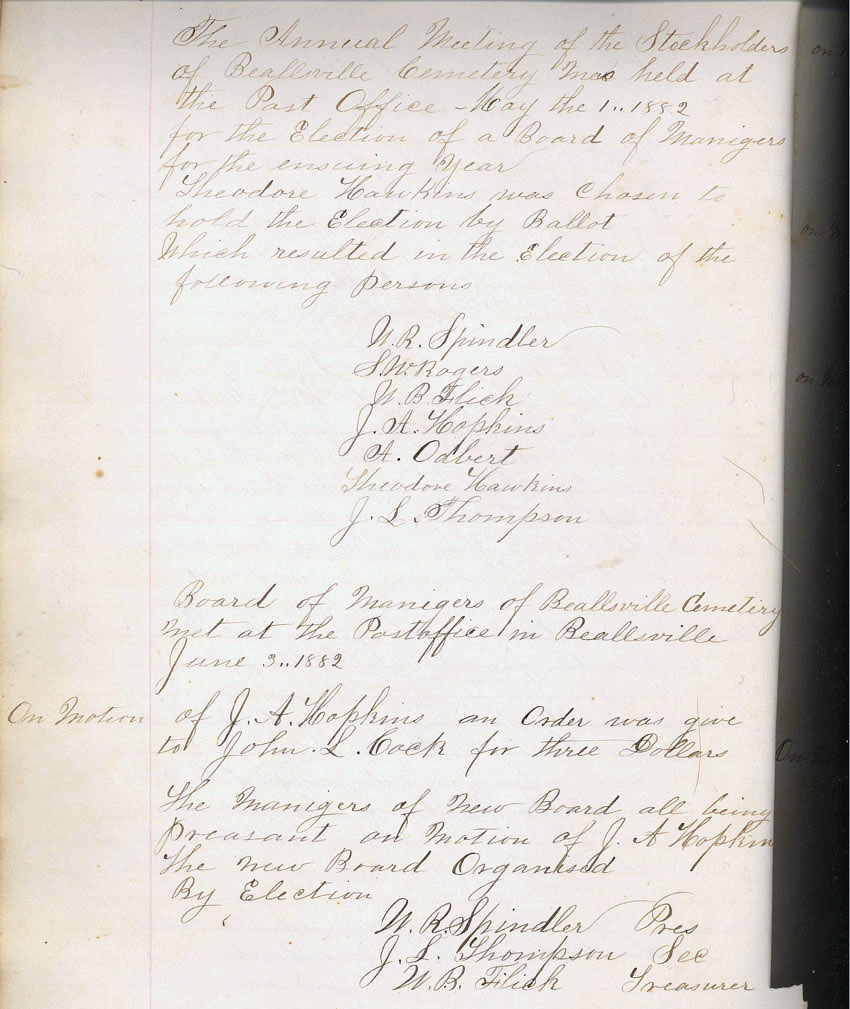 The Annual Meeting of the Stockholders
of Beallsville Cemetery Was held at
the Post Office - May the 1.. 1882
for the Election of a Board of Manigers
for the ensuing Year
Theodore Hawkins was Chosen to
hold the Election by Ballot
Which resulted in the Election of the
following Persons
W. R. Spindler
S. W. Rogers
W. B. Flick
J. A. Hopkins
A. Odbert
Theodore Hawkins
J. L. Thompson
Board of Manigers of Beallsville Cemetery
met at the Postoffice in Beallsville
June 3.. 1882
On Motion of J. A. Hopkins an Order was give
to John. L. Cock for three Dollars
The Manigers of New Board all being
Preasant on Motion of J. A Hopkin
The new Board Organised
By Election
W. R. Spindler Pres
J. L. Thompson Sec
W. B. Flick Treasurer
on
on
on
On